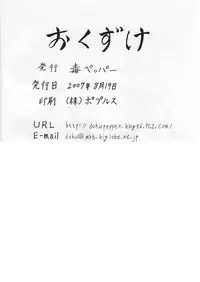 おくずけ
発行 毒ペッパー
発行日 2007年8月19日
印刷 (株)ポプルス
URL http://dokupepper.blog86.fc2.com/
E-mail doku@mbh.biglobe.ne.jp